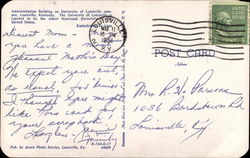 Administration Building on University of Louisville cam-
pus, Louisville, Kentucky. The University of Louisville is
reputed to be the oldest municipal University in the
United States.
LOUISVILLE
KY.
POST CARD
Dearest Mom -
you have a
pleasant Mother's Day.
We expect you out
as usual,
I thought you might
like this card for
your scrapbook!
Mrs R. H. Parsons
1036 Bardstown Rd.
Louisville, Ky.
Pub. by Acorn Photo Service, Louisville, Ky.